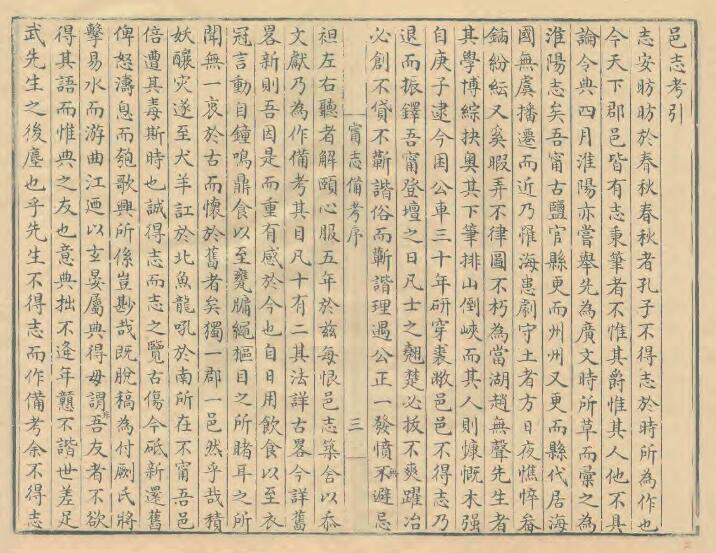 邑志考引
志安昉昉於春秋春秋者孔子不得志於時所為作也
今天下郡邑皆有志秉筆者不惟其爵惟其人他不具
論今典四月淮陽亦嘗舉先為廣文時所草而彙之為
淮陽志矣吾甯古鹽官縣更而州州又更而縣代居海
國無虞播遷而近乃惟海患劇守土者方日夜憔悴畚
鍤紛紜又奚暇弄不律圖不朽為當湖趙無聲先生者
其學博綜抉奧其下筆排山倒峽而其人則慷慨木强
自庚子逮今困公車三十年研穿裘敝邑邑不得志乃
退而振鐸吾甯登壇之日凡士之翹楚必拔不爽躍冶
必創不貸不蘄諧俗而蘄諧理遇公正一發憤不避忌
甯志備考序
三
袒左右聽者解頤心服五年於兹每恨邑志築舍以忝
文獻乃為作備考其目凡十有二其法詳古畧今詳舊
畧新則吾因是而重有感於今也自日用飲食以至衣
冠言動自鐘鳴鼎食以至甕牖繩樞目之所睹耳之所
聞無一衷於古而懷於舊者矣獨一郡一邑然乎哉積
妖釀灾遂至犬羊訌於北魚龍吼於南所在不甯吾邑
倍遭其毒斯時也誠得志而志之覽古傷今砥新還舊
俾怒濤息而匏歌興所係豈尠哉既脫稿為付劂氏將
擊易水而游曲江廼以玄晏屬典得毋謂吾友者不欲
得其語而惟典之友也意典拙不逢年戇不諧世差足
武先生之後塵也乎先生不得志而作備考余不得志